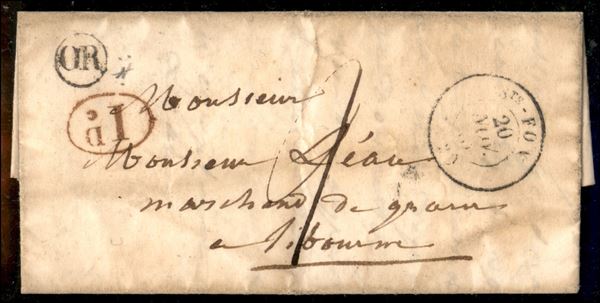 OR
1 D
Ste-FOY
20
NOV.
Monsieur
Monsieur Léau
marchand de grains
a libourne